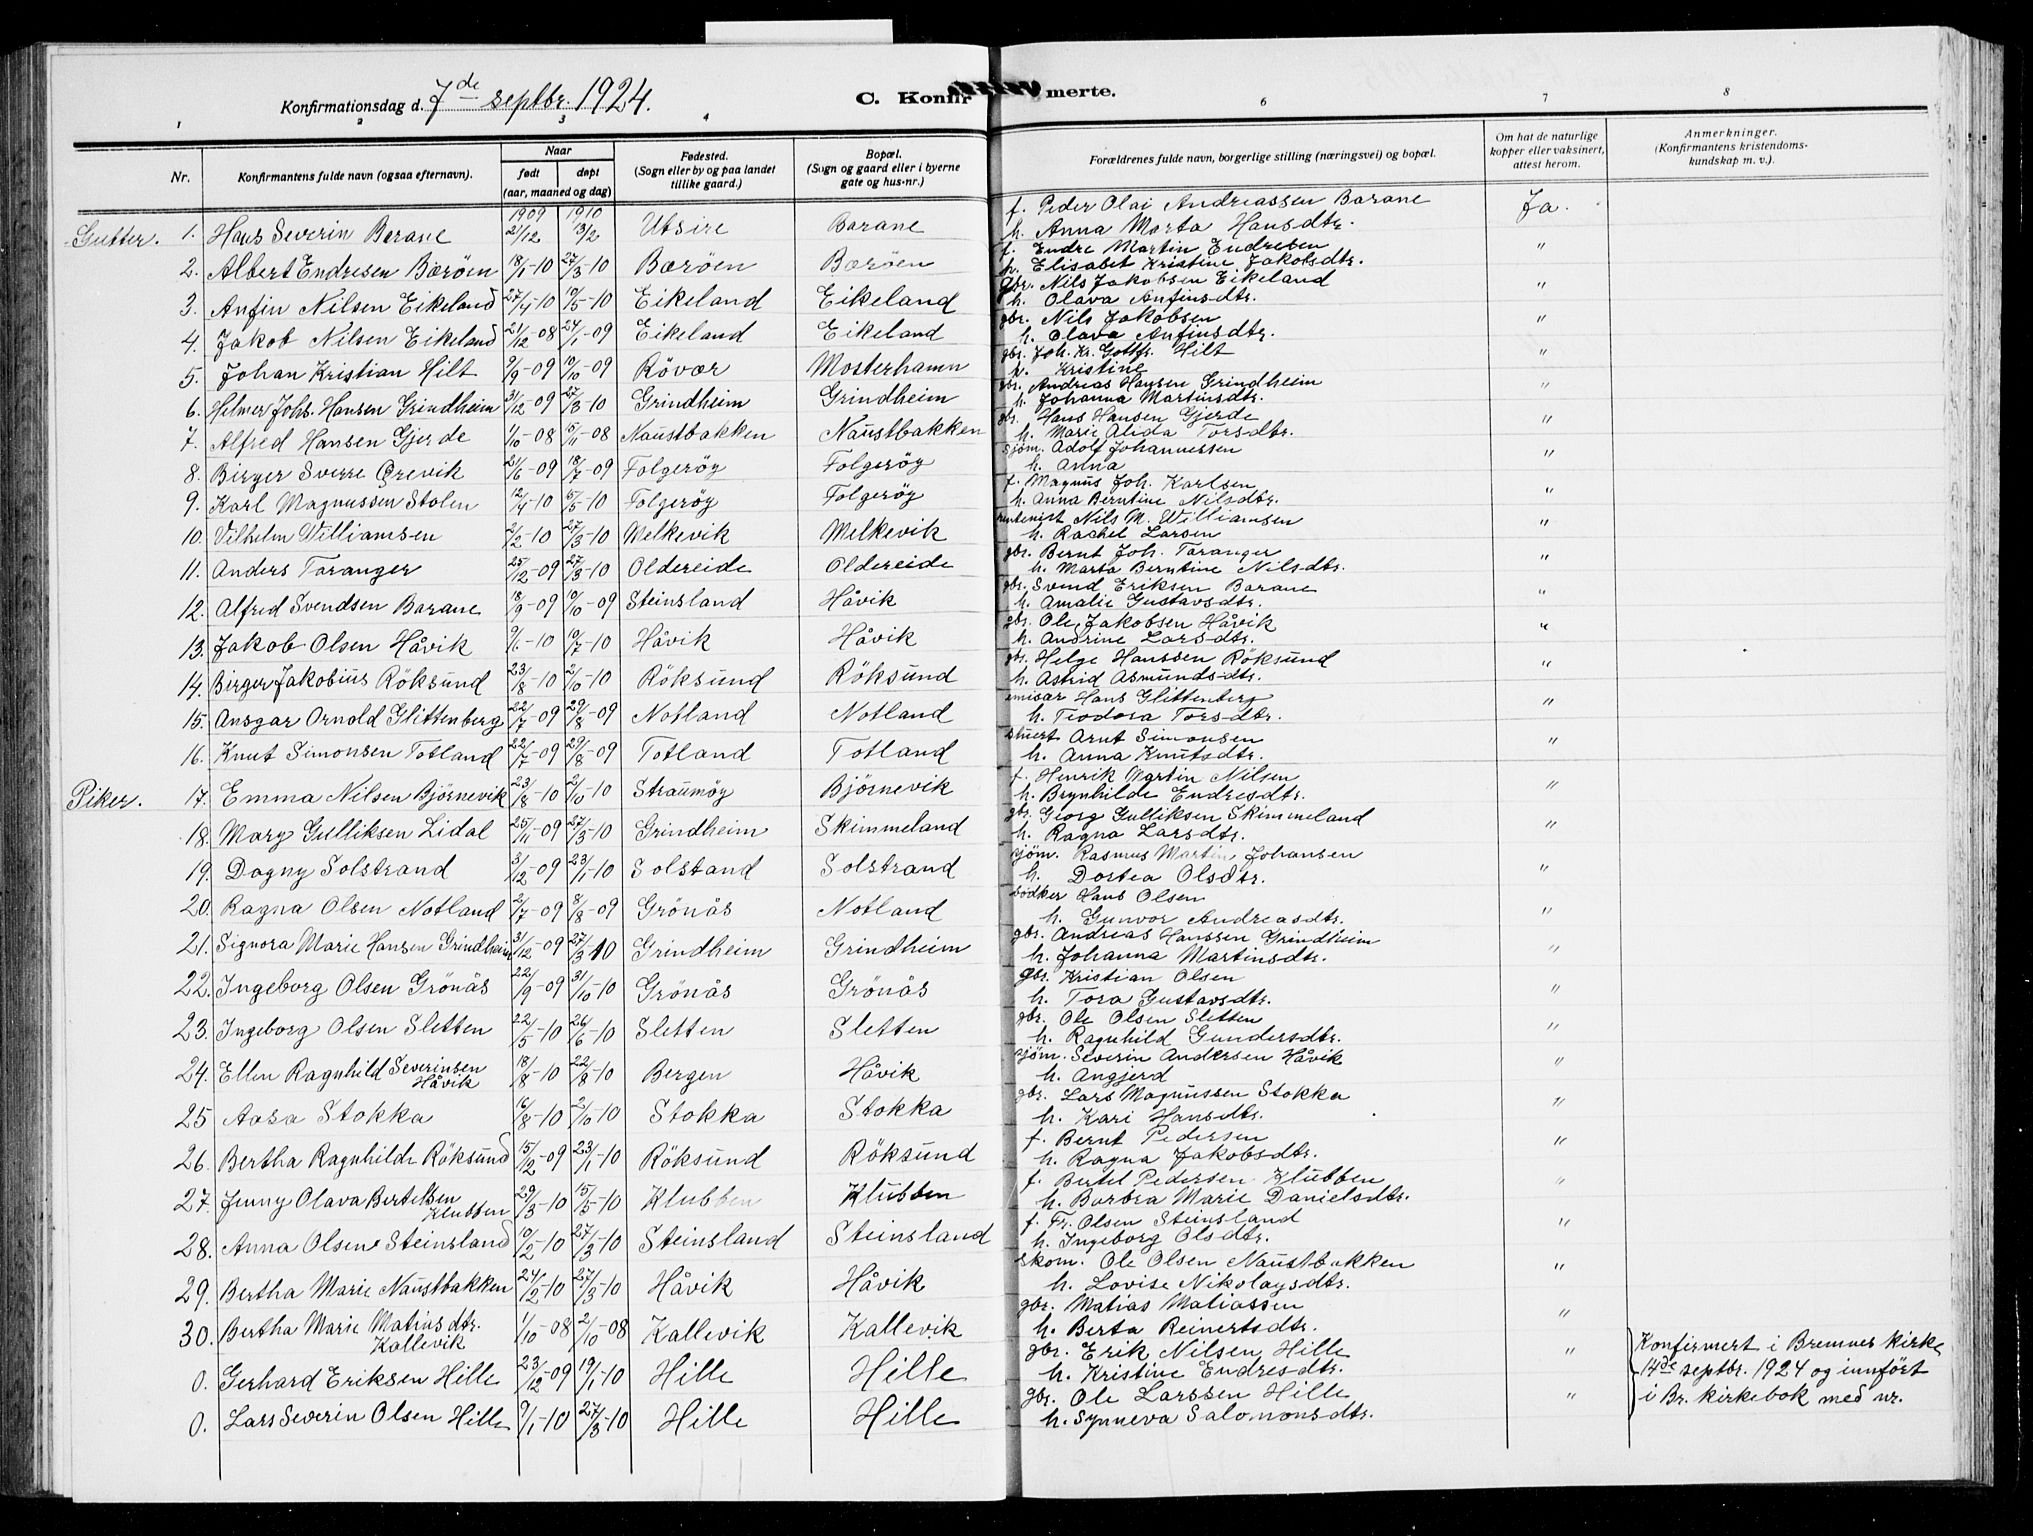 Konfirmationsdag d. 7de septbr. 1924.
C. Konfir merte.
1 2 3 4 6 7 8
Nr. Konfirmantens fulde navn (ogsaa efternavn). Naar født døpt (aar, maaned og dag) Fødested. (Sogn eller by og paa landet tillike gaard.) Bopæl. (Sogn og gaard eller i byerne gate og hus-nr.) Forældrenes fulde navn, borgerlige stilling (næringsvei) og bopæl. Om hat de naturlige kopper eller vaksinert, attest herom. Anmerkninger. (Konfirmantens kristendomskundskap m. v.).
Gutter. 1. Hans Severin Barane 1909 21/12 1910 13/2 Utsire Barane f. Peder Olai Andreassen Barane h. Anna Marta Hansdtr. Ja.
2. Albert Endresen Bærøen 18/1-10 27/3-10 Bærøen Bærøen f. Endre Martin Endresen h. Elisabet Kristine Jakobsdtr. "
3. Anfin Nilsen Eikeland 27/4-10 10/5-10 Eikeland Eikeland gbr. Nils Jakobsen Eikeland h. Olava Anfinsdtr. "
4. Jakob Nilsen Eikeland 21/12-08 24/1-09 Eikeland Eikeland gbr. Nils Jakobsen h. Olava Anfinsdtr. "
5. Johan Kristian Hilt 9/9-09 10/10-09 Rövær Mosterhamn gbr. Joh. Kr. Gottfr. Hilt h. Kristine "
6. Hilmer Johs. Hansen Grindheim 31/12-09 27/3-10 Grindheim Grindheim gbr. Andreas Hansen Grindheim h. Johanna Martinsdtr. "
7. Alfred Hansen Gjerde 1/10-08 15/11-08 Naustbakken Naustbakken gbr. Hans Hansen Gjerde h. Marie Alida Torsdtr. "
8. Birger Sverre Grevik 21/6-09 18/7-09 Folgeröy Folgeröy sjöm. Adolf Johannessen h. Anna "
9. Karl Magnussen Stolen 12/4-10 15/5-10 Folgeröy Folgeröy f. Magnus Joh. Karlsen h. Anna Berntine Nilsdtr. "
10. Vilhelm Williamsen 2/2-10 27/3-10 Melkevik Melkevik Nils M. Williamsen h. Rachel Larsen "
11. Anders Taranger 25/12-09 27/3-10 Oldereide Oldereide gbr. Bernt Joh. Taranger h. Marta Berntine Nilsdtr. "
12. Alfred Svendsen Barane 18/9-09 10/10-09 Steinsland Håvik gbr. Svend Eriksen Barane h. Amalie Gustavsdtr. "
13. Jakob Olsen Håvik 9/6-10 10/7-10 Håvik Håvik gbr. Ole Jakobsen Håvik h. Andrine Larsdtr. "
14. Birger Jakobius Röksund 23/8-10 2/10-10 Röksund Röksund gbr. Helge Hanssen Röksund h. Astrid Asmundsdtr. "
15. Ansgar Arnold Glittenberg 22/7-09 29/8-09 Notland Notland emisær Hans Glittenberg h. Teodora Torsdtr. "
16. Knut Simonsen Totland 22/7-09 29/8-09 Totland Totland stuert Arnt Simonsen h. Anna Knutsdtr. "
Piker. 17. Emma Nilsen Björnevik 23/8-10 2/10-10 Straumöy Björnevik f. Henrik Martin Nilsen h. Brynhilde Endresdtr. "
18. Mary Gulliksen Lidal 25/11-09 27/3-10 Grindheim Skimmeland gbr. Georg Gulliksen Skimmeland h. Ragna Larsdtr. "
19. Dagny Solstrand 3/12-09 23/1-10 Solstand Solstrand sjöm. Rasmus Martin Johansen h. Dortea Olsdtr. "
20. Ragna Olsen Notland 2/7-09 8/8-09 Grönås Notland bödker Hans Olsen h. Gunvor Andreasdtr. "
21. Signora Marie Hansen Grindheim 31/12-09 27/3 10 Grindheim Grindheim gbr. Andreas Hanssen Grindheim h. Johanna Martinsdtr. "
22. Ingeborg Olsen Grönås 22/9-09 31/10-10 Grönås Grönås gbr. Kristian Olsen h. Tora Gustavsdtr. "
23. Ingeborg Olsen Sletten 22/5-10 26/6-10 Sletten Sletten gbr. Ole Olsen Sletten h. Ragnhild Gundersdtr. "
24. Ellen Ragnhild Severinsen Håvik 18/8-10 22/8-10 Bergen Håvik sjöm. Severin Andersen Håvik h. Angjerd "
25 Aasa Stokka 16/8-10 2/10-10 Stokka Stokka gbr. Lars Magnussen Stokka h. Kari Hansdtr. "
26. Bertha Ragnhilde Röksund 15/12-09 23/1-10 Röksund Röksund f. Bernt Pedersen h. Ragna Jakobsdtr. "
27. Jenny Olava Bertelsen Klubben 29/3-10 15/5-10 Klubben Klubben f. Bertel Pedersen Klubben h. Barbra Marie Danielsdtr. "
28. Anna Olsen Steinsland 10/2-10 27/3-10 Steinsland Steinsland f. Fr. Olsen Steinsland h. Ingeborg Olsdtr. "
29. Bertha Marie Naustbakken 24/2-10 27/3-10 Håvik Håvik skom. Ole Olsen Naustbakken h. Lovise Nikolaysdtr. "
30. Bertha Marie Matiasdtr. Kallevik 1/10-08 2/10-08 Kallevik Kallevik gbr. Matias Matiassen h. Berta Reinertsdtr. "
0. Gerhard Eriksen Hille 23/12-09 19/1-10 Hille Hille gbr. Erik Nilsen Hille h. Kristine Endresdtr. " Konfirmert i Bremnes kirke 14de septbr. 1924 og innført
0. Lars Severin Olsen Hille 9/1-10 27/3-10 Hille Hille gbr. Ole Larssen Hille h. Synneva Salomonsdtr. " i Br. kirkebok med nr.